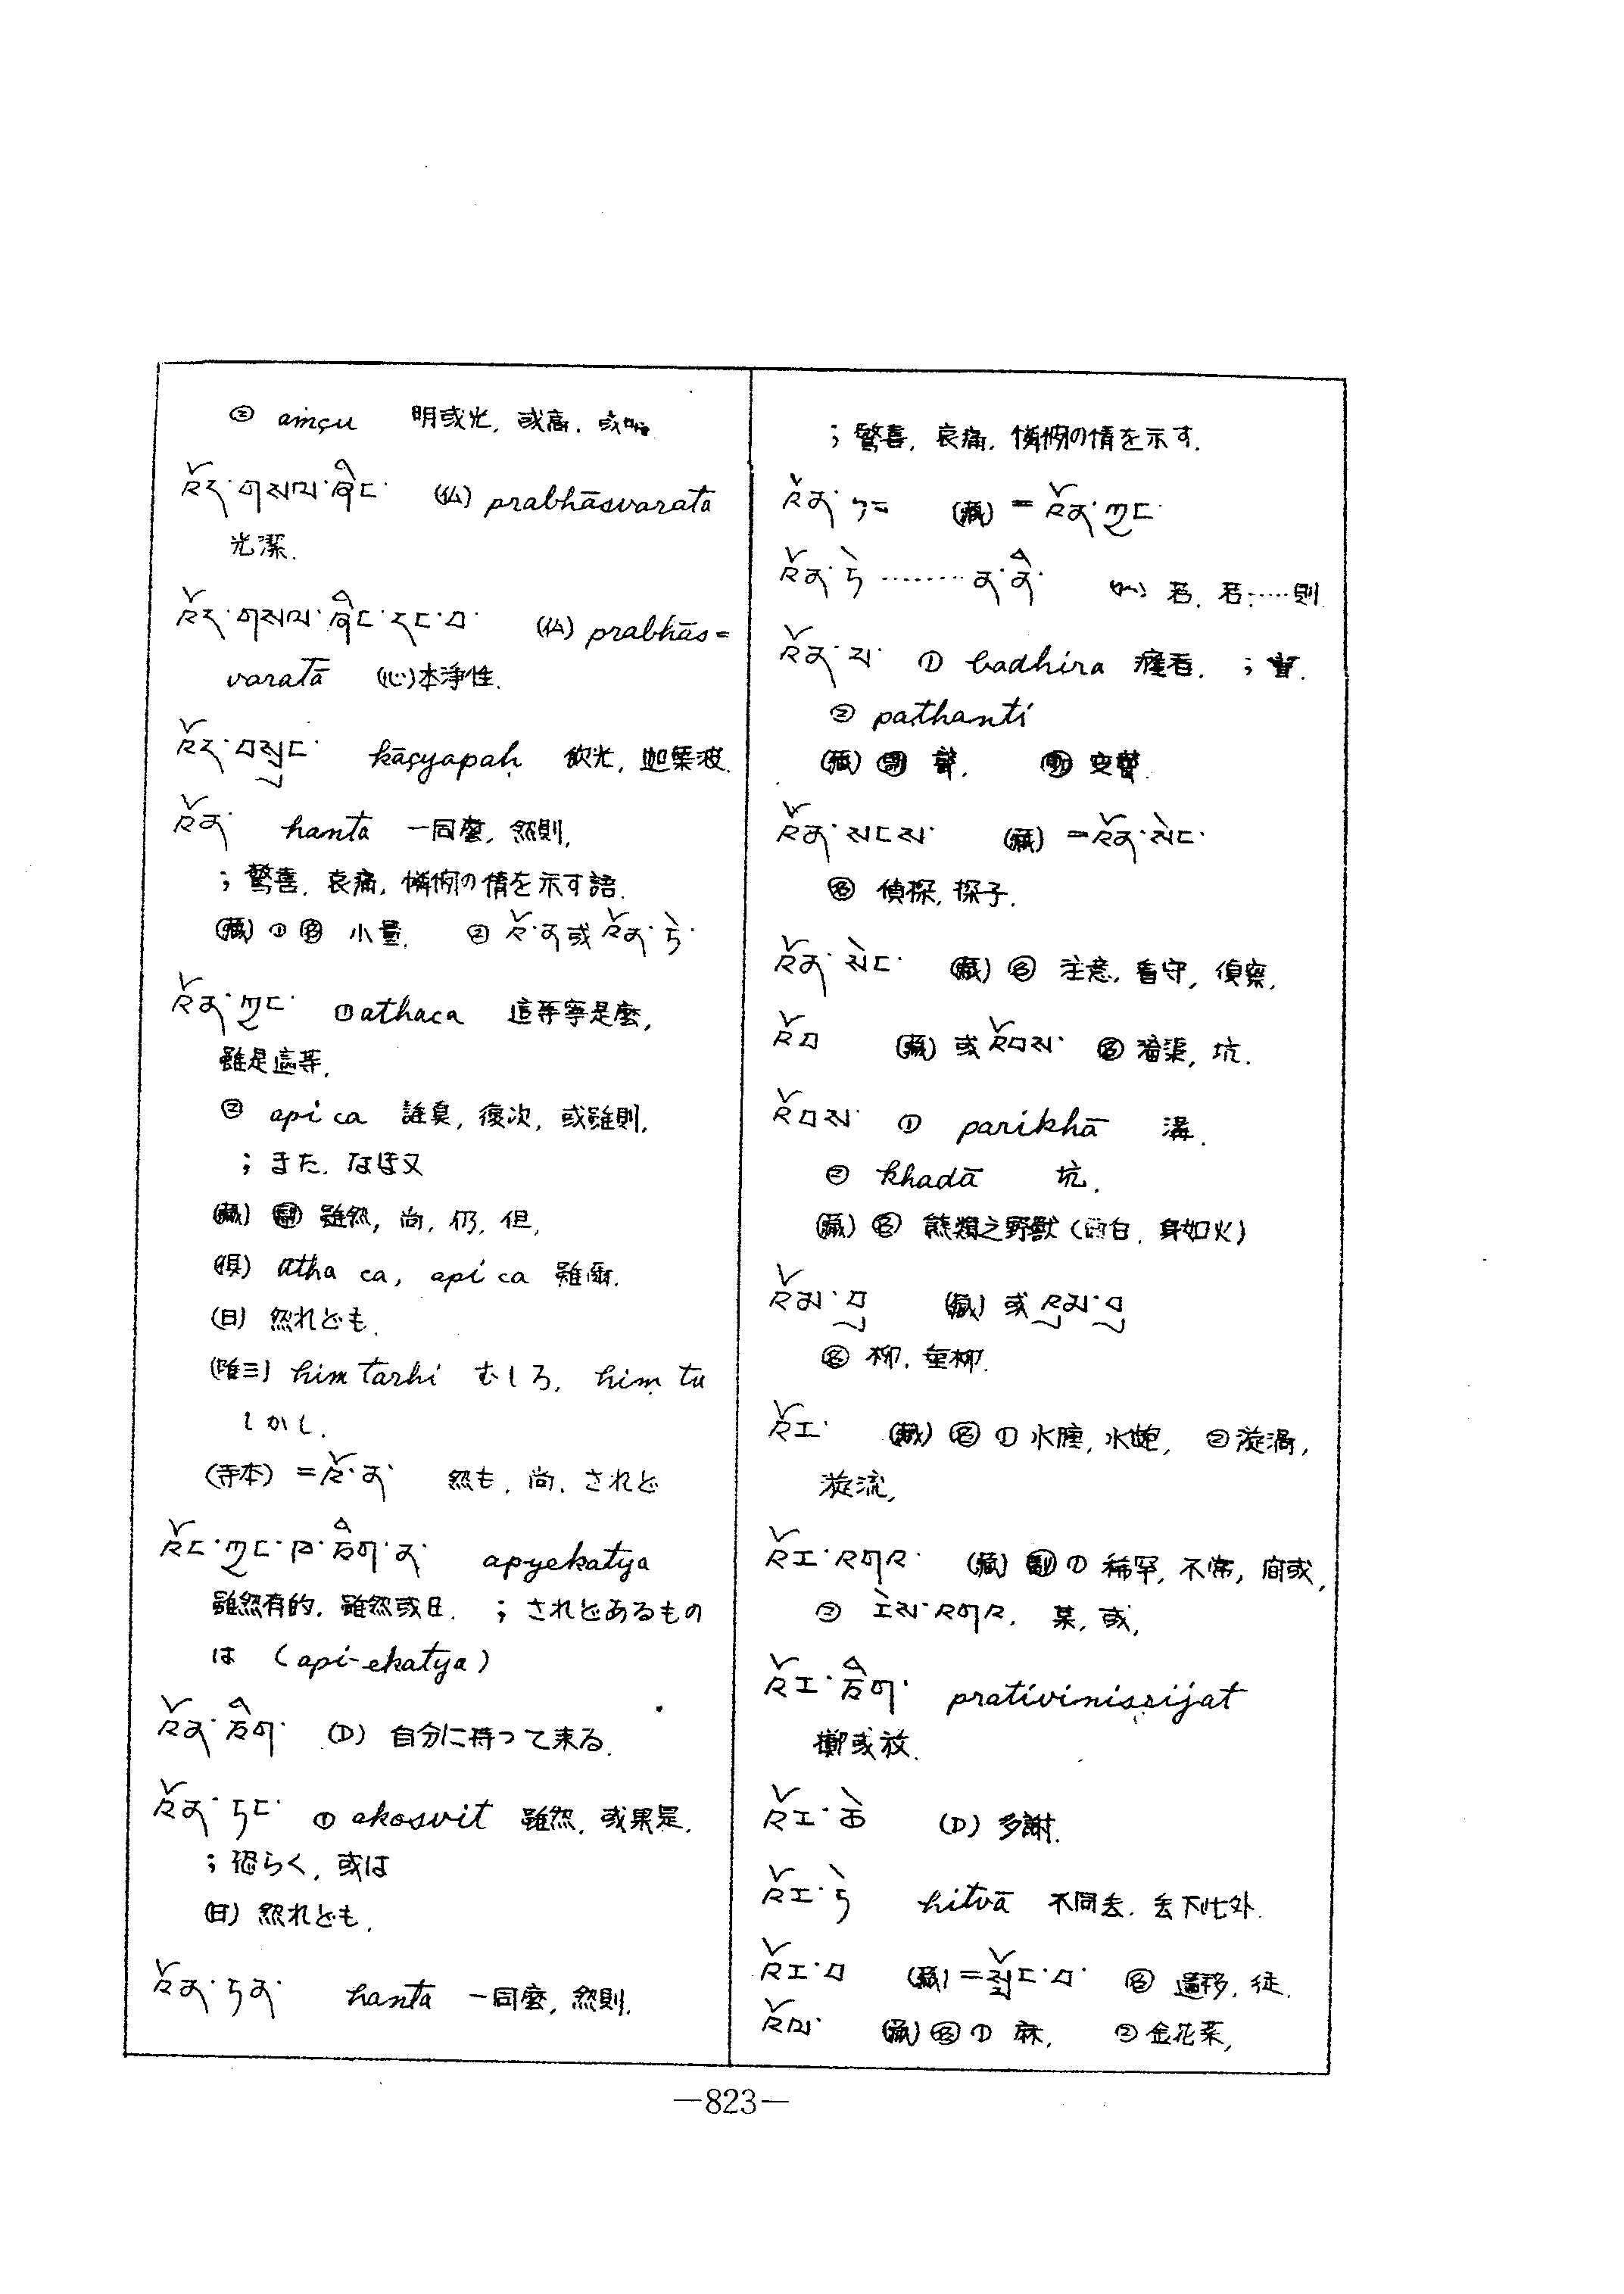 ② aṁçu 明或光, 或高, 或
འོད་གསལ་ཞིང་ (仏) prabhāsvaratā
光潔.
འོད་གསལ་ཞིང་དང་བ་ (仏) prabhās=
varatā (心)本淨性.
འོད་བསྲུང་ kāçyapaḥ 飲光, 迦葉波.
འོན་ hanta 一同麼, 然則,
; 驚喜, 哀痛, 憐憫の情を示す語.
(藏) ① 名 小量. ② འོ་ན་或 འོན་ཏེ་
འོན་ཀྱང་ ① athaca 這等寧是麼,
雖是這等,
② api ca 誰臭, 復次, 或雖則,
; また, なほ又
(藏) 副 雖然, 尚, 仍, 但,
(俱) atha ca, api ca 雖爾.
(日) 然れども.
(唯三) him tarhi むしろ, hiṃ tu
しかし.
(寺本) =འོ་ན་ 然も, 尚, されど
འོང་ཀྱང་ཁ་ཅིག་ན་ apyekatya
雖然有的, 雖然或曰. ; されどあるもの
は (api-ekatya)
འོན་ཅིག་ (D) 自分に持って来る.
འོན་ཏང་ ① akosvit 雖然, 或果是,
; 恐らく, 或は
(日) 然れども.
འོན་ཏན་ hanta 一同麼, 然則.
; 驚喜, 哀痛, 憐憫の情を示す.
འོན་ (藏) =འོན་ཀྱང་
འོན་ཏེ ········ ན་ནི་ 若, 若……則
འོན་པ་ ① badhira 瘂者. ;
② pathanti
(藏) 聾. 変聾.
འོན་སངས་ (藏) =འོན་སེང་
名 偵探, 探子.
འོན་སེང་ (藏) 名 注意, 看守, 偵察,
འོབ (藏) 或 འོབས་ 名 溝渠, 坑.
འོབས་ ① parikhā 溝.
② khadā 坑.
(藏) 名 熊類之野獸 (面白, 身如火)
འོམ་བུ (藏) 或 འུམ་བུ
名 柳, 垂柳.
འོར་ (藏) 名 ① 水腫, 水皰, ② 漩渦,
漩流,
འོར་འགའ་ (藏) 副 ① 稀罕, 不常, 间或,
② རེས་འགའ, 某, 或,
འོར་ཅིག་ prativinisṣijat
擲或放.
འོར་ཆེ (D) 多謝.
འོར་ཏེ hitvā 不同去, 去下此外.
འོར་བ (藏) =སྐྱོང་བ་ 名 遷移, 徙.
འོལ་ (藏) 名 ① 麻, ② 金花菜,
—823—